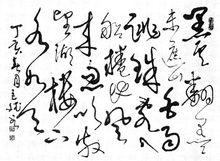 黑雲翻墨
未遮山白雨
跳珠亂入
船捲地風
来忽吹散
望湖樓下
水如天
丁亥